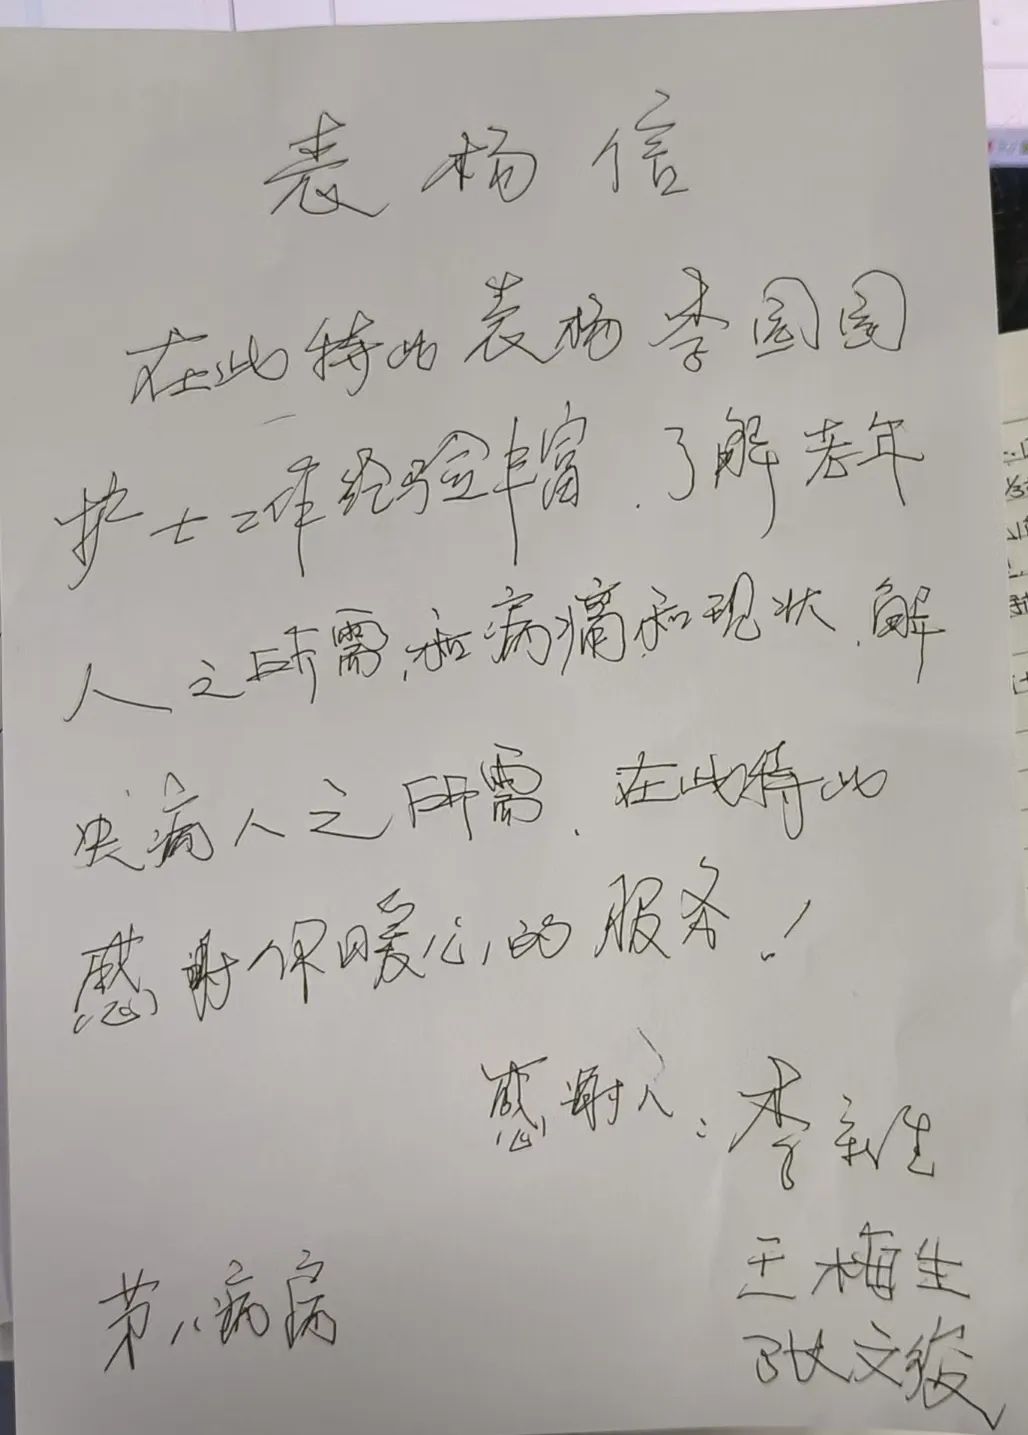 表杨信
在此特此表杨李园园
护士工作经验丰富.了解老年
人之所需,和病痛和现状.解
决病人之所需.在此特此
感谢你暖心的服务!
感谢人:李
王梅生
张文俊
第八病房